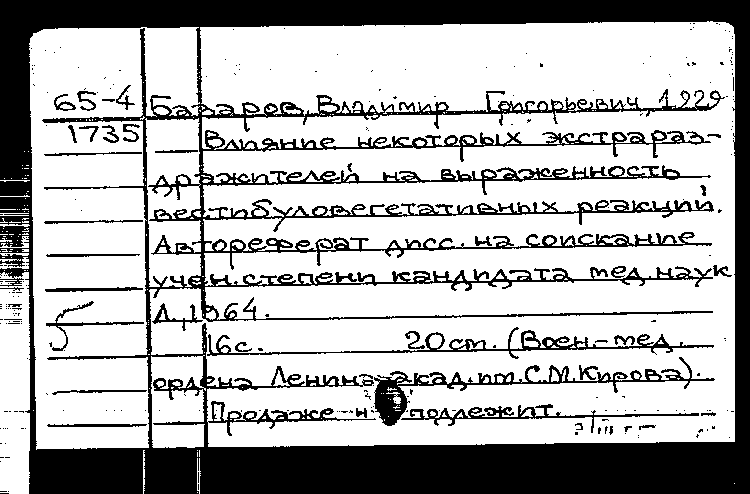 65-4 Базаров, Владимир Григорьевич, 1929
1735 Влияние некоторых экстрараз-
дражителей на выраженность
вестибуловегетативных реакций.
Автореферат дисс. на соискание
учен. степени кандидата мед. наук
Л., 1964.
5
16с. 20см. (Воен-мед.
ордена Ленина акад. им. С.М. Кирова).
Продаже н подлежит.